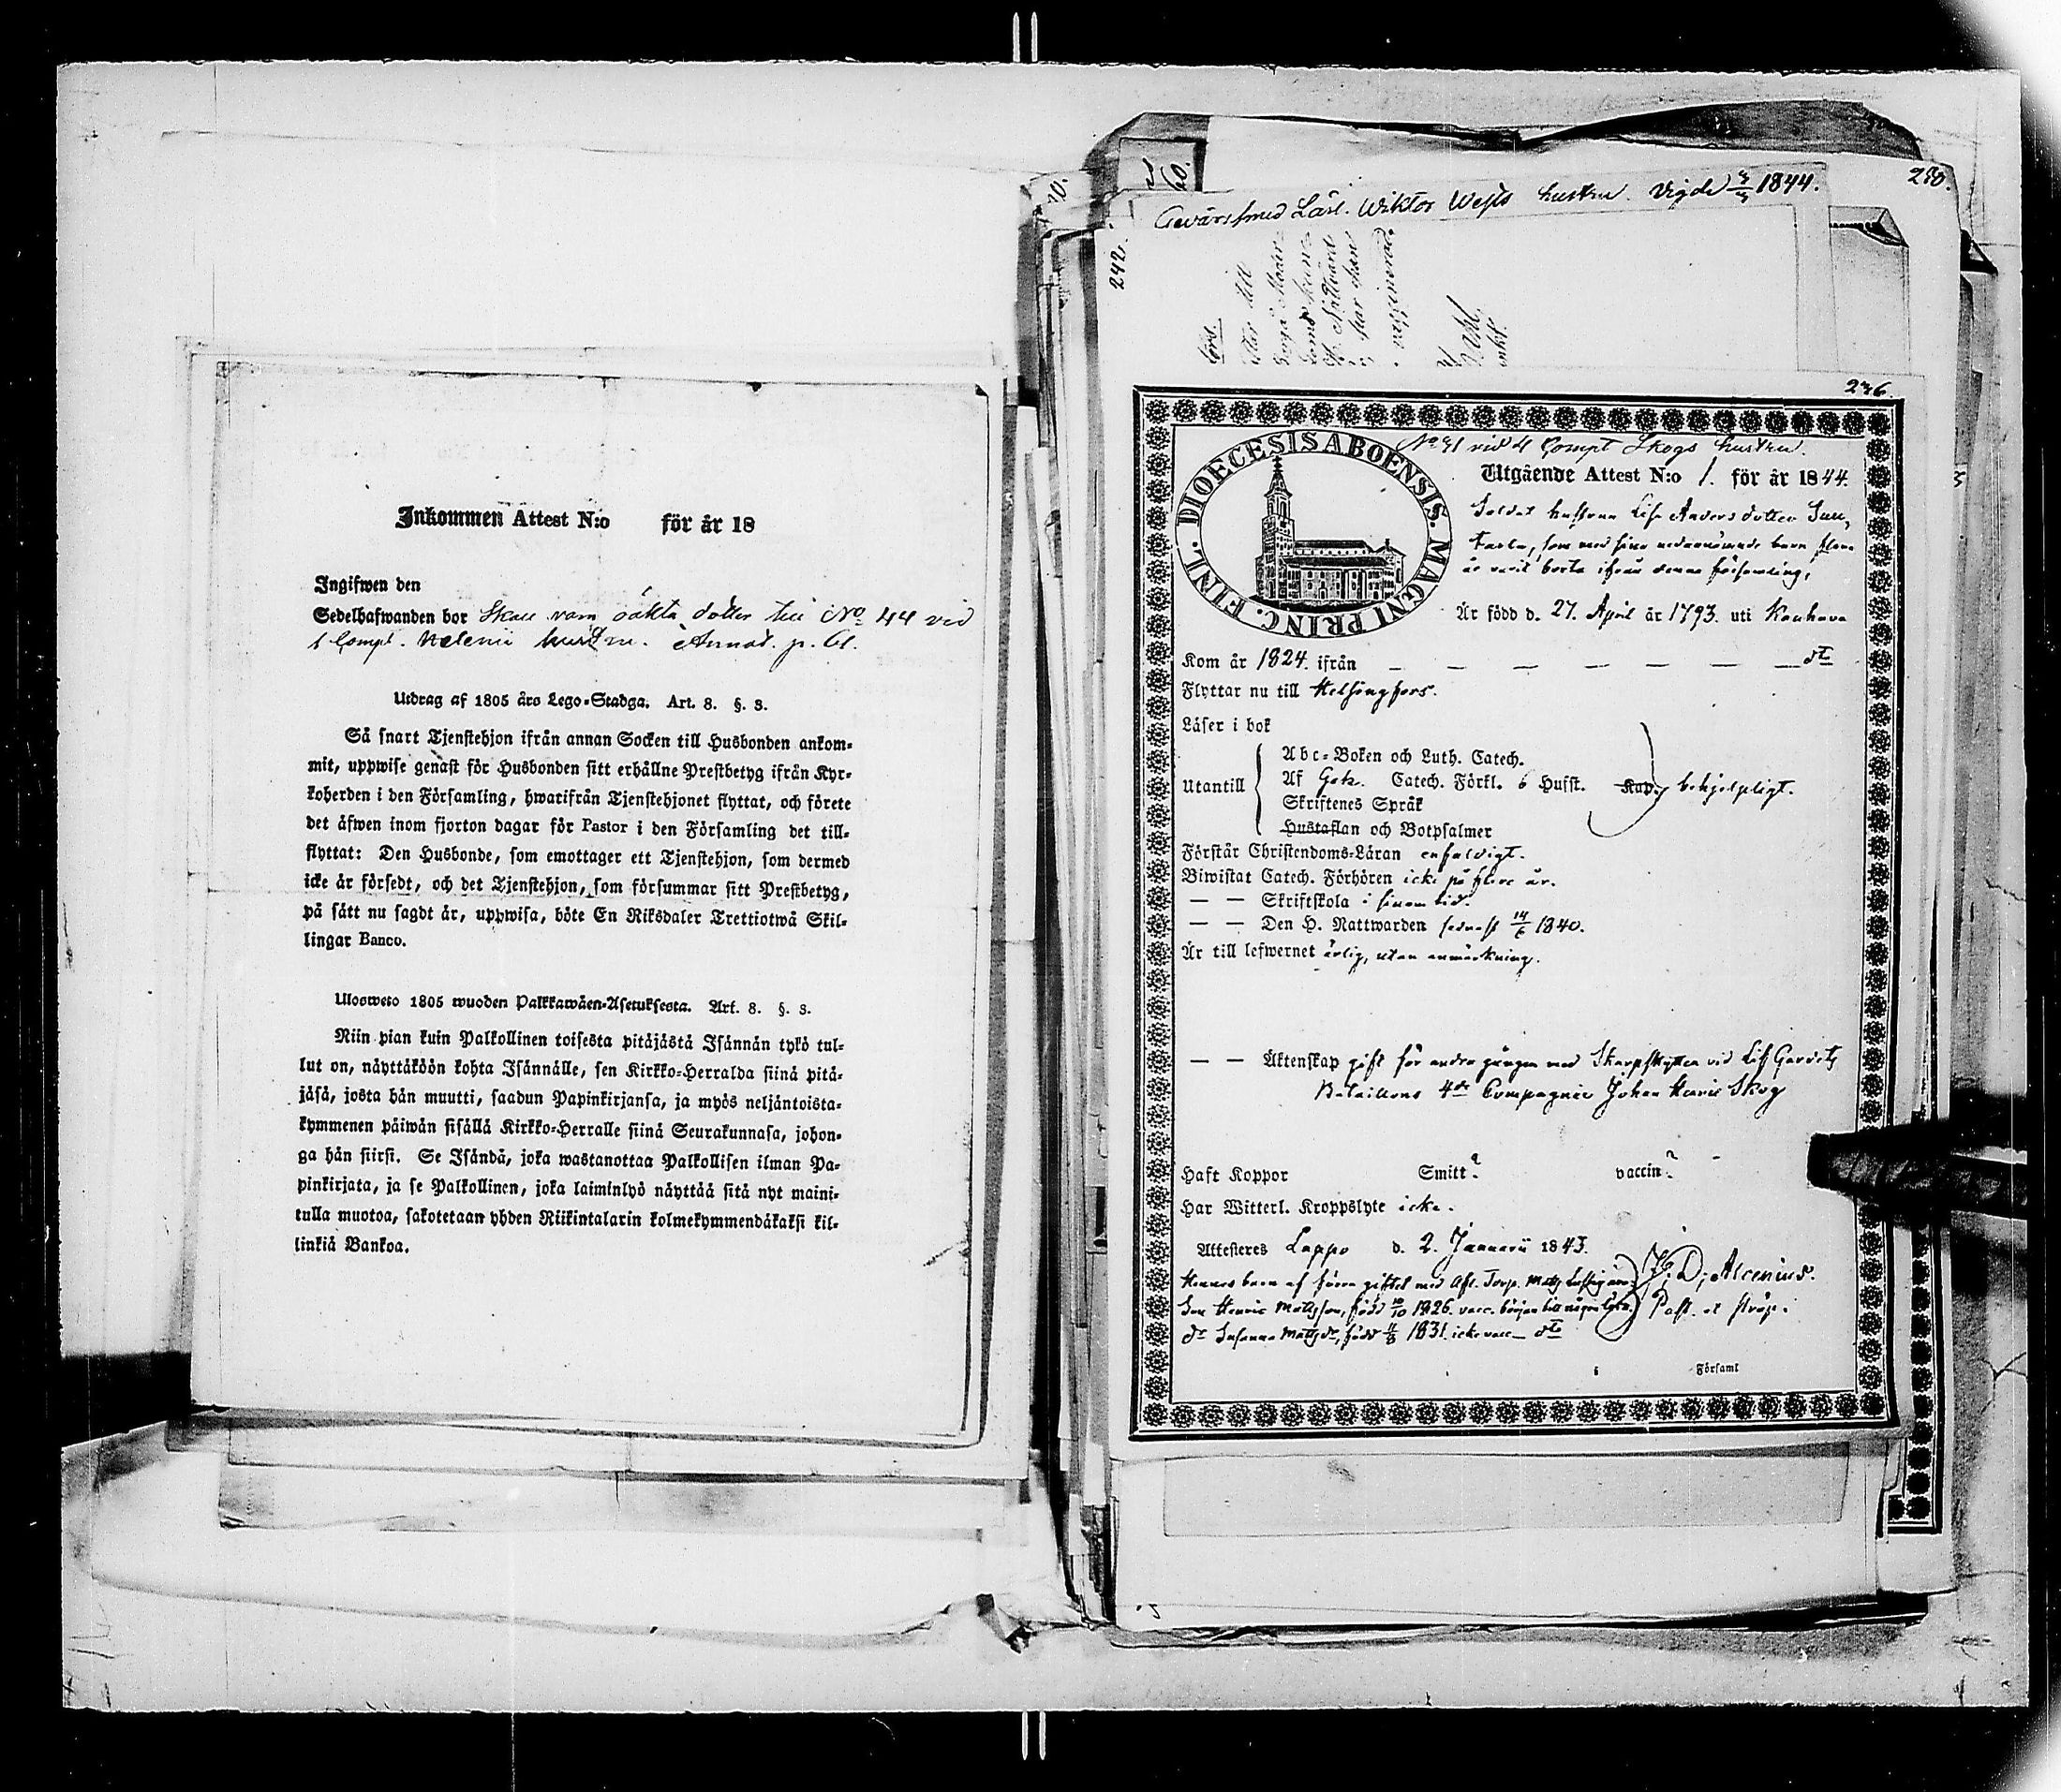 Inkommen Attest N:o för år 18
Ingifwen den
Sedelhafwanden bor Skall vara oäkta dotter till No 44 vid
1 Compt. Helenii hustru. Annot. p. 61.
Utdrag af 1805 års Lego-Stadga. Art. 8. §. 3.
Så snart Tjenstehjon ifrån annan Socken till Husbonden ankom-
mit, uppwise genast för Husbonden sitt erhållne Prestbetyg ifrån Kyr-
koherden i den Församling, hwarifrån Tjenstehjonet flyttat, och förete
det äfwen inom fjorton dagar för Pastor i den Församling det till-
flyttat: Den Husbonde, som emottager ett Tjenstehjon, som dermed
icke är försedt, och det Tjenstehjon, som försummar sitt Prestbetyg,
på sätt nu sagdt är, uppwisa, böte En Riksdaler Trettiotwå Skil-
lingar Banco.
Ulosweto 1805 wuoden Palkkawäen-Asetuksesta. Art. 8. §. 3.
Niin pian kuin Palkollinen toisesta pitäjästä Isännän tykö tul-
lut on, näyttäköön kohta Isännälle, sen Kirkko-Herralda siinä pitä-
jäsä, josta hän muutti, saadun Papinkirjansa, ja myös neljäntoista-
kymmenen päiwän sisällä Kirkko-Herralle siinä Seurakunnasa, johon-
ga hän siirsi. Se Isändä, joka wastanottaa Palkollisen ilman Pa-
pinkirjata, ja se Palkollinen, joka laiminlyö näyttää sitä nyt maini-
tulla muotoa, sakotetaan yhden Riikintalarin kolmekymmendäkaksi kil-
linkiä Bankoa.
280.
Gevärssmed Lärl. Wiktor Wests hustru. Vigde 1844.
242.
236.
No 31 vid 4 Compt Skogs hustru.
DIOECESIS ABOENSIS. MAGNI PRINC. FINL.
Utgående Attest N:o 1. för år 1844.
Soldat hustrun Lisa Andersdotter
som med sina nedannämnde barn flera
år varit borta ifrån denna församling,
Är född d. 27. April år 1793. uti Kauhava
Kom år 1824. ifrån — — — — — — — dt
Flyttar nu till Helsingfors.
Läser i bok
Utantill
Abc-Boken och Luth. Catech.
Af Catech. Förkl. 6 Hufst. Kap. behjelpligt.
Skriftenes Språk
Hustaflan och Botpsalmer
Förstår Christendoms-Läran enfaldigt.
Biwistat Catech. Förhören icke på flere år.
— — Skriftskola i sinom tid
— — Den H. Nattwarden sednast 14/6 1840.
Är till lefwernet ärlig, utan anmärkning.
— — Äktenskap gift för andra gången med Skarpskytten vid Lif Gardets
Bataillons 4de Compagnie Johan Henric Skog
Haft Koppor Smitt? vaccin?
Har Witterl. Kroppslyte icke.
Attesteras Lappo d. 2. Januarii 1843.
Hennes barn af förra giftet med Afl. Torp.
Son Henric Mattsson, född 1826. vacc.
Dr Susanna Mattsdr, född 1831. icke vacc— dto
J. D. Alcenius.
Past.
Församl